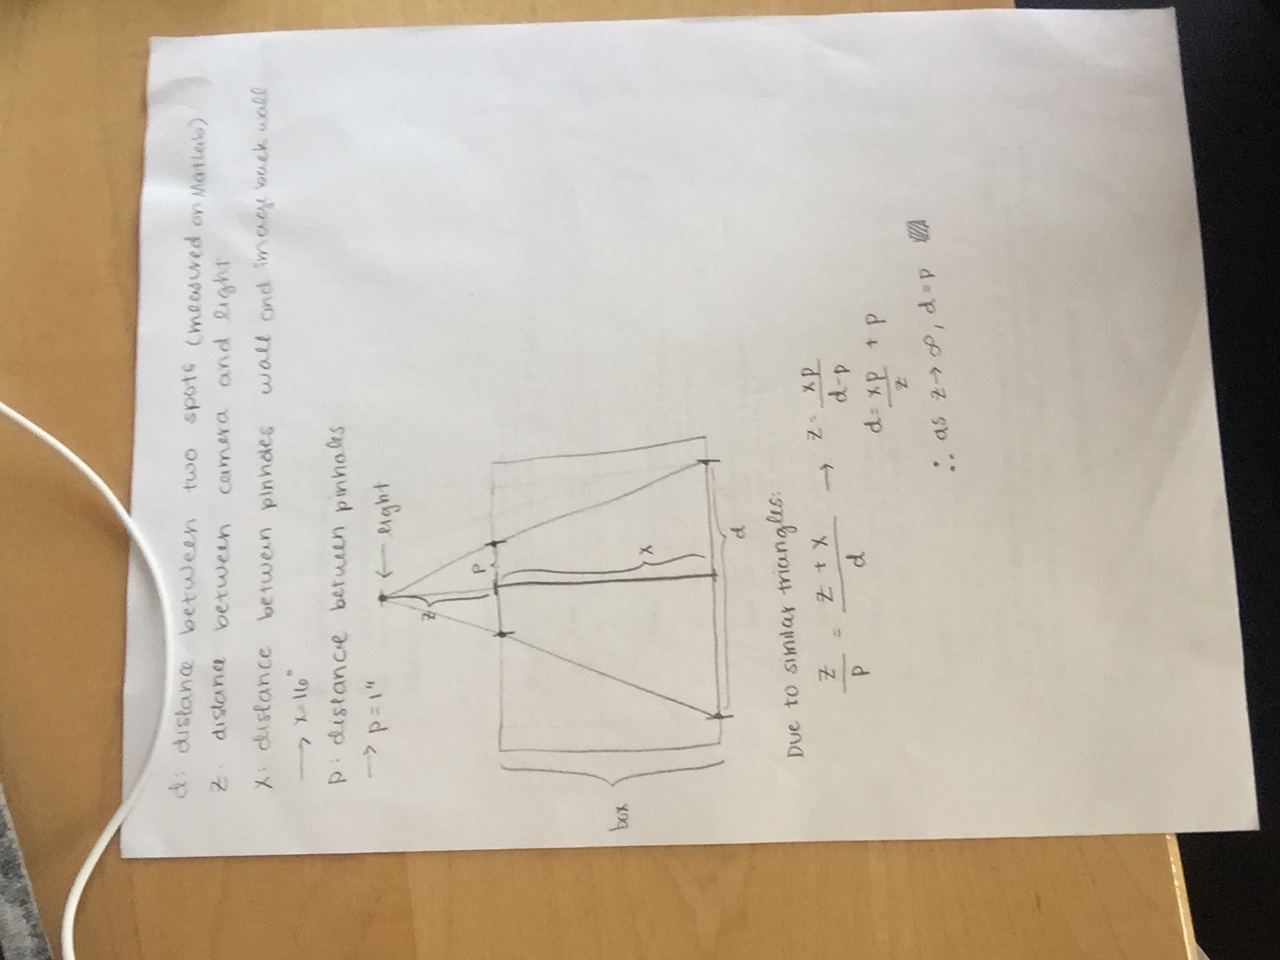 d: distance between two spots (measured on Matlab)
z: distance between camera and light
x: distance between pinholes wall and image back wall
→ x=16"
p: distance between pinholes
→ p=1"
← light
z
p
box
x
d
Due to similar triangles:
z/p = (z + x)/d → z = xp/(d-p)
d = xp/z + p
∴ as z→∞, d=p